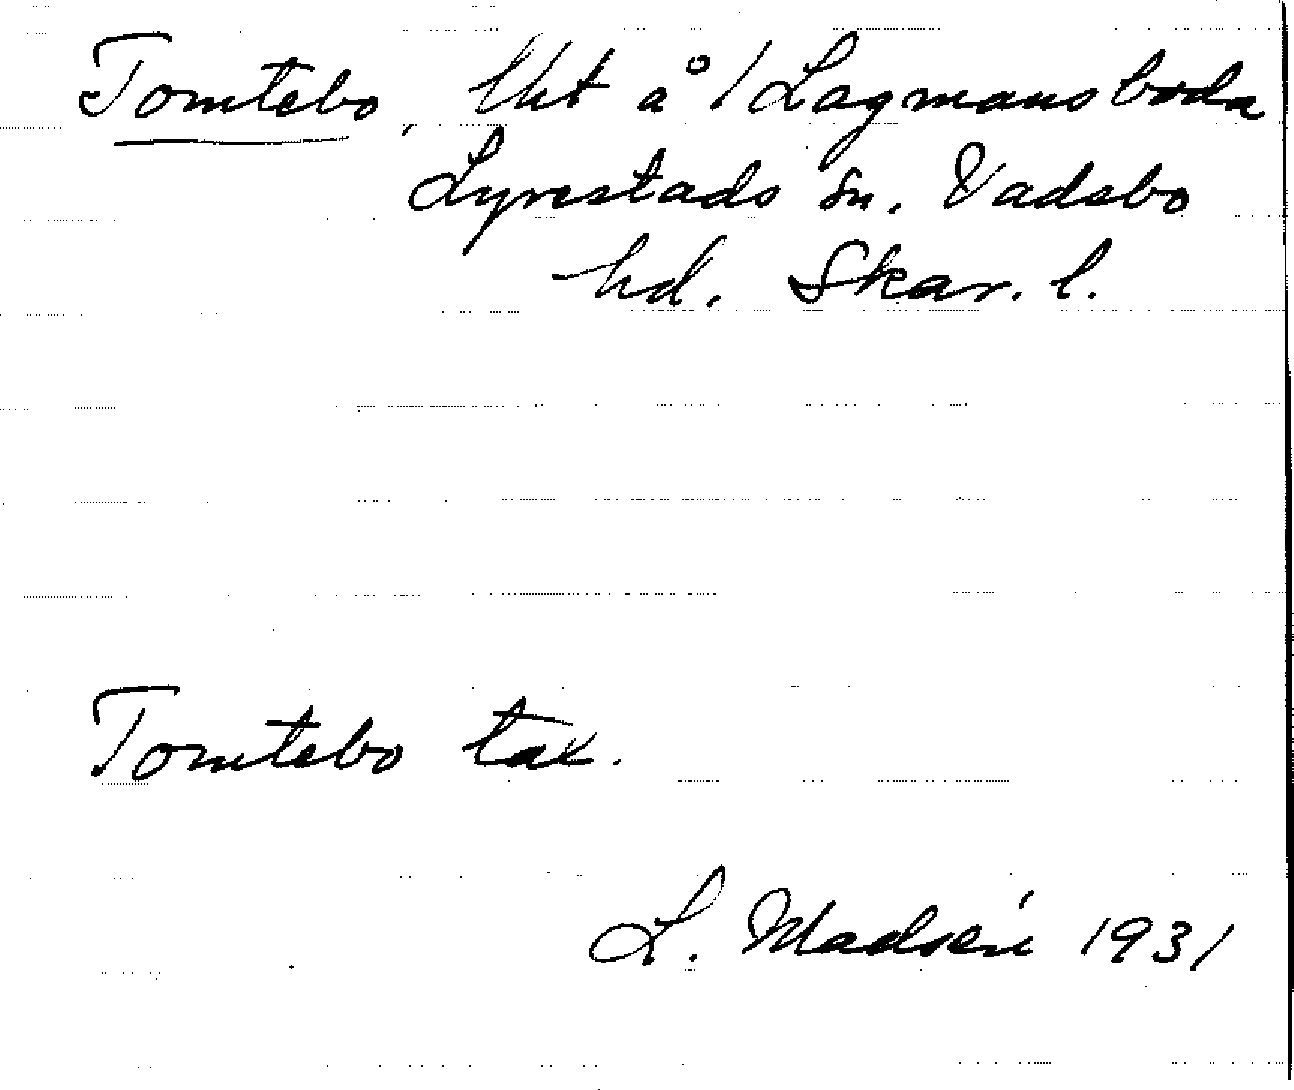 Tomtebo, lht å 1 Lagmansboda
Lyrestads sn. Vadsbo
hd. Skar. l.
Tomtebo tax.
L. Madsén 1931